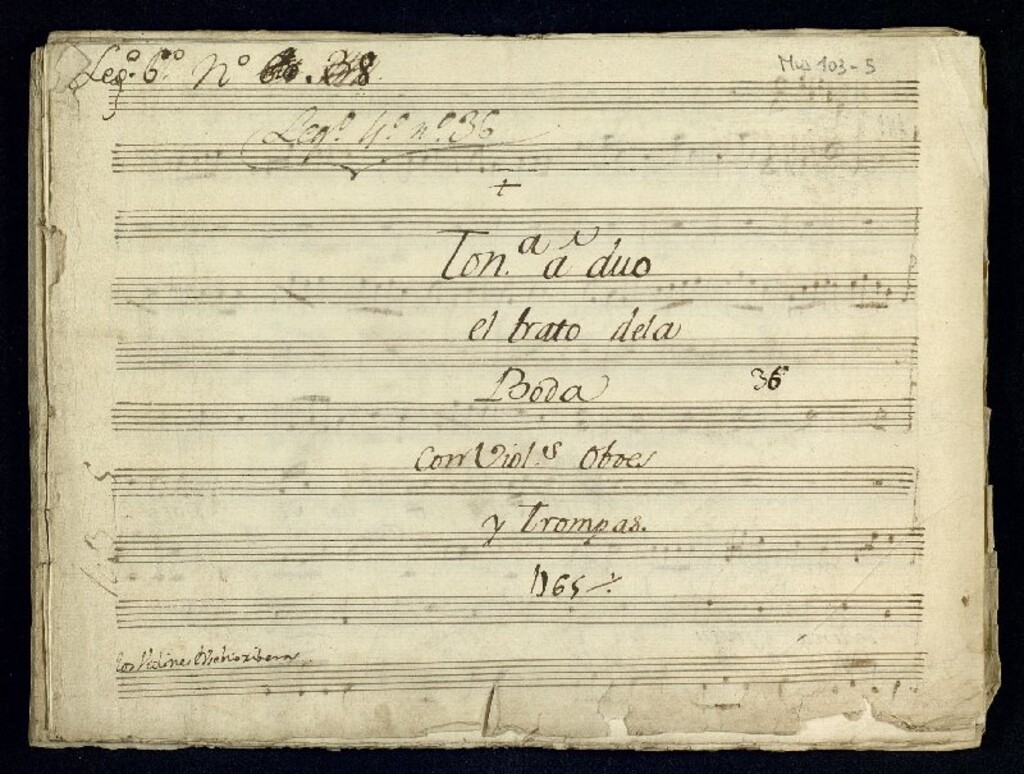 Leg.º 6.º Nº 38
Mus 103-5
Leg.º 4.º n.º 36
+
Ton.ª a duo
el trato dela
Boda 36
Con Viol.s Oboes
y Trompas.
1765